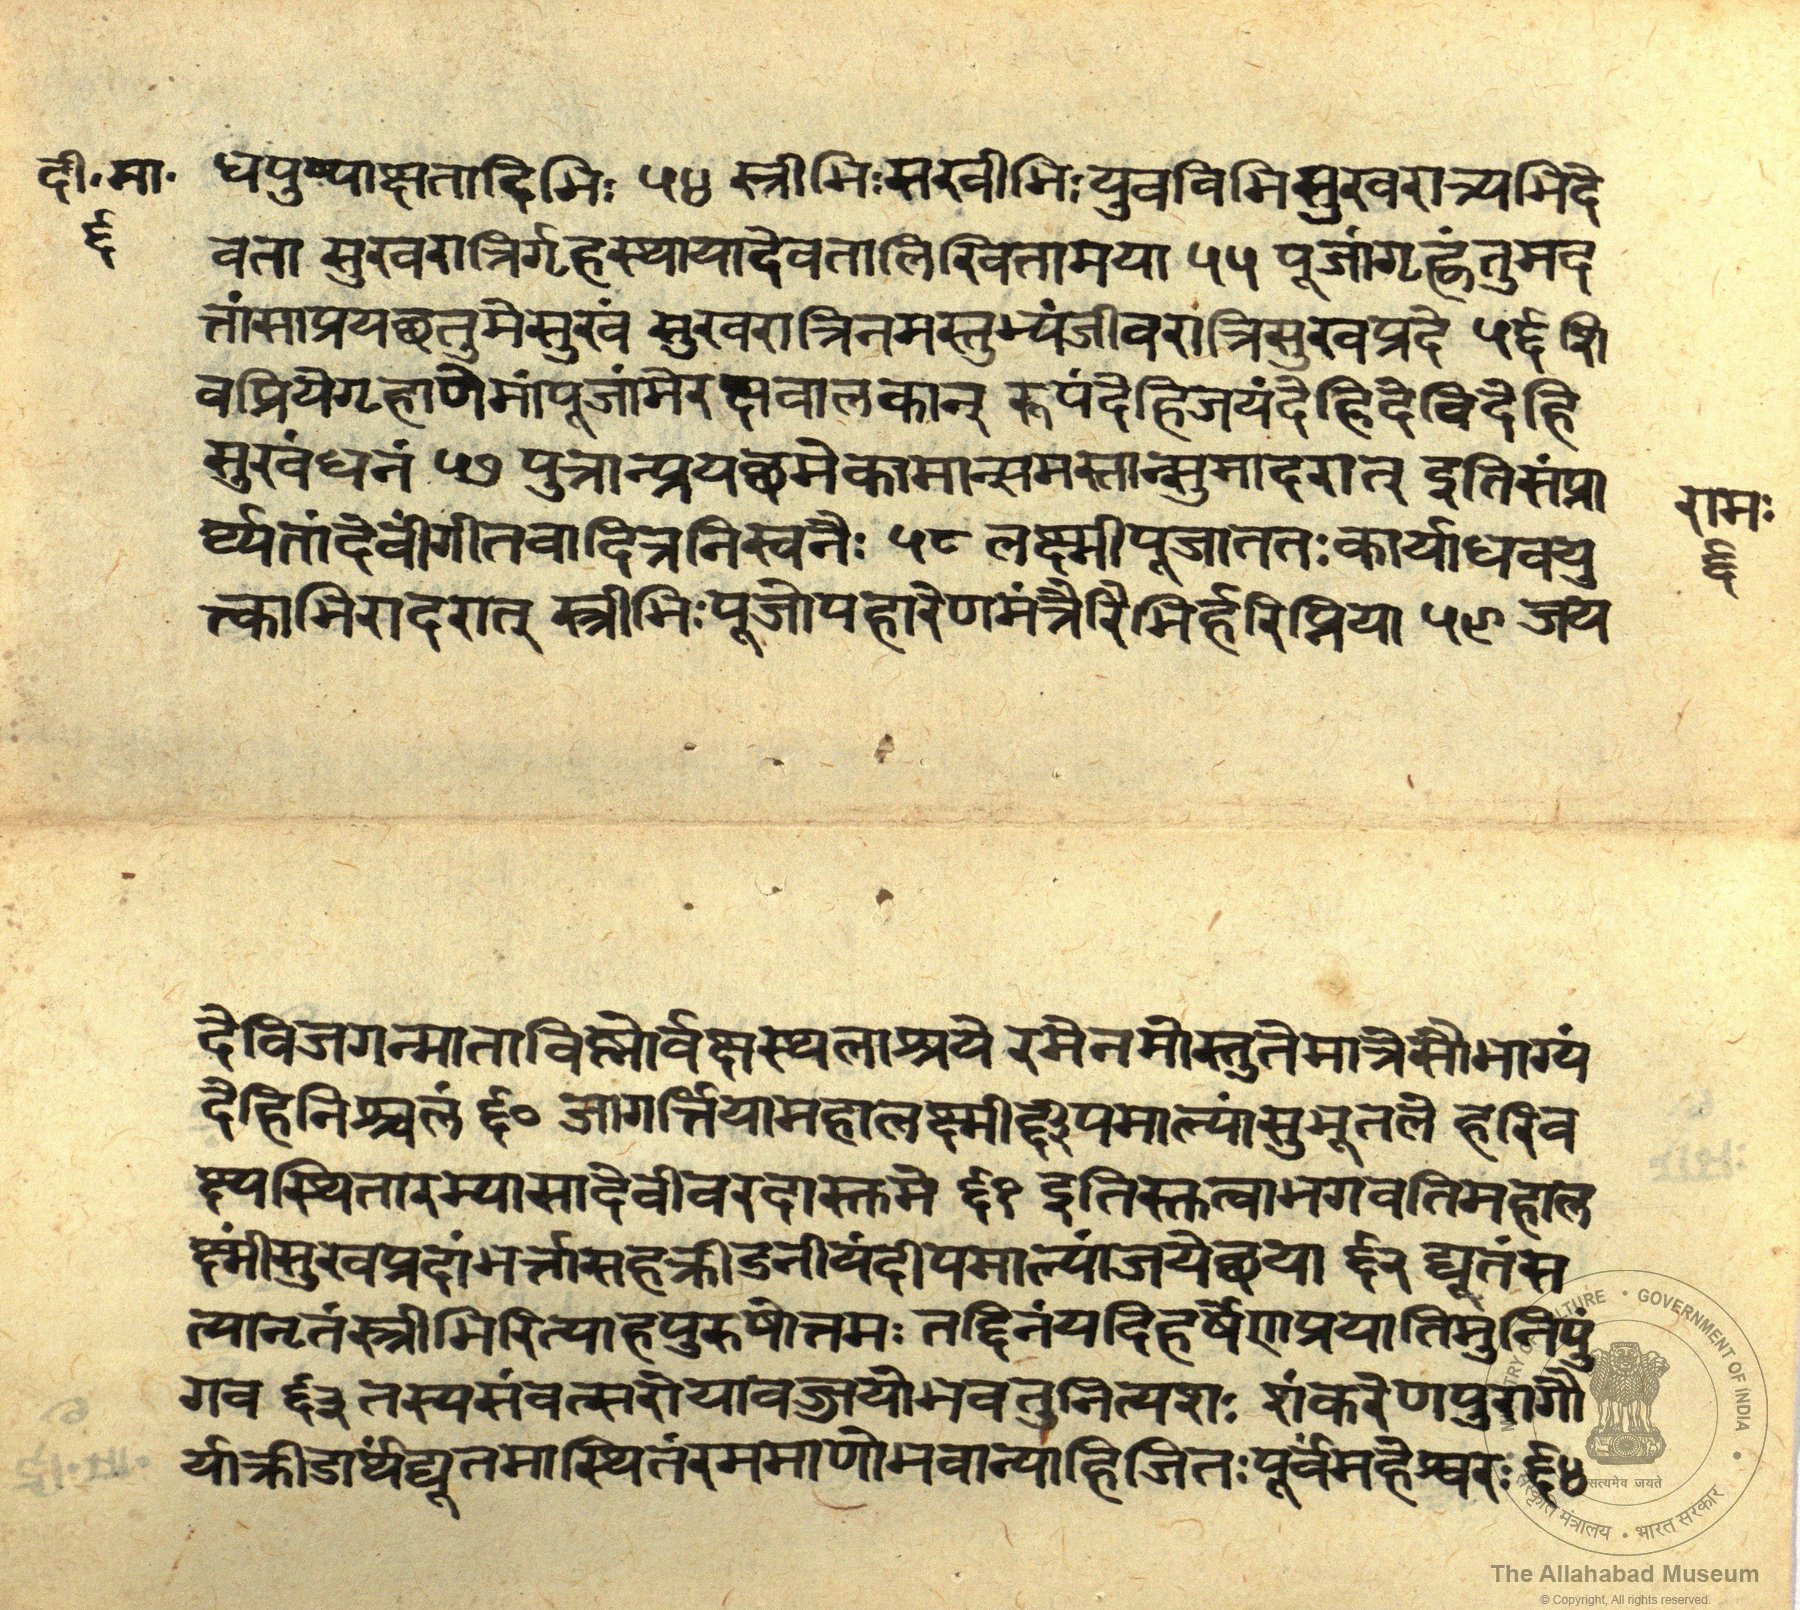 दी॰मा॰
६
धपुष्पाक्षतादिभिः ५४ स्त्रीभिःसखीभिःयुवविभिसुखरात्र्यभिदे
वता सुखरात्रिर्गृहस्थायादेवतालिखितामया ५५ पूजांगृह्णंतुमद
त्तांसाप्रयछतुमेसुखं सुखरात्रिनमस्तुभ्यंजीवरात्रिसुखप्रदे ५६ शि
वप्रियेगृहाणेमांपूजांमेरक्षवालकान् रूपंदेहिजयंदेहिदेविदेहि
सुखंधनं ५७ पुत्रान्प्रयछमेकामान्समस्तान्सुमादरात् इतिसंप्रा
र्थ्यतांदेवींगीतवादित्रनिस्वनैः ५८ लक्ष्मीपूजाततःकार्याधवयु
त्काभिरादरात् स्त्रीभिःपूजोपहारेणमंत्रैरेभिर्हरिप्रिया ५९ जय
रामः
६
देविजगन्माताविष्णोर्वक्षस्थलाश्रये रमेनमोस्तुतेमात्रेसौभाग्यं
देहिनिश्चलं ६० जागर्त्तियामहालक्ष्मीद्दीपमाल्यांसुभूतले हरिव
क्ष्यस्थितारम्यासादेवीवरदास्तमे ६१ इतिस्तत्वाभगवतिमहाल
क्ष्मींसुखप्रदांभर्त्तासहक्रीडनीयंदीपमाल्यांजयेछया ६२ द्यूतंस
त्यानृतंस्त्रीभिरित्याहपुरुषोत्तमः तद्दिनंयदिहर्षेणप्रयातिमुनिपुं
गव ६३ तस्यसंवत्सरोयावज्जयोभवतुनित्यशः शंकरेणपुरागौ
र्याक्रीडार्थंद्यूतमास्थितंरममाणोभवान्याहिजितःपूर्वंमहेश्वरः ६४
MINISTRY OF CULTURE • GOVERNMENT OF INDIA
सत्यमेव जयते
संस्कृति मंत्रालय • भारत सरकार
The Allahabad Museum
© Copyright, All rights reserved.